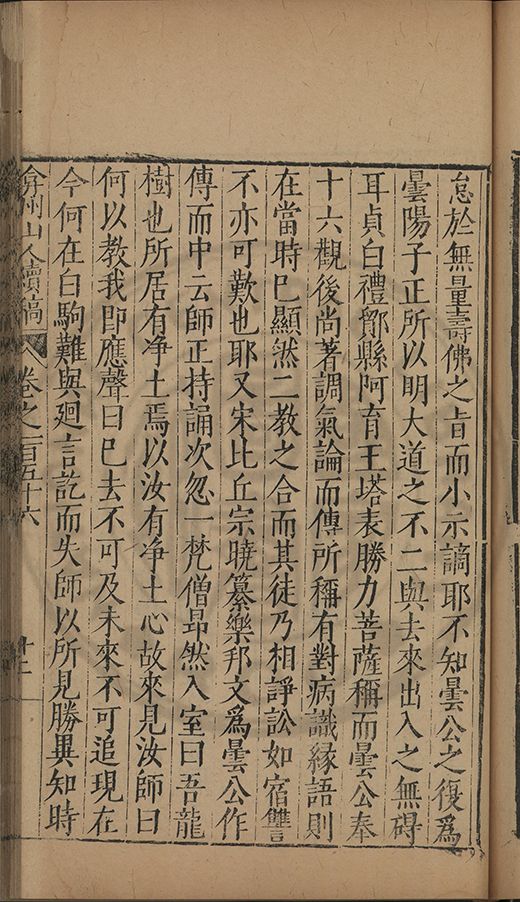 怠於無量壽佛之旨而小示謫耶不知曇公之復爲
曇陽子正所以明大道之不二與去來出入之無碍
耳貞白禮鄮縣阿育王塔表勝力菩薩稱而曇公奉
十六觀後尚著調氣論而傳所稱有對病識緣語則
在當時已顯然二教之合而其徒乃相諍訟如宿讐
不亦可歎也耶又宋比丘宗曉纂樂邦文爲曇公作
傳而中云師正持誦次忽一梵僧昻然入室曰吾龍
樹也所居有净土焉以汝有净土心故來見汝師曰
何以教我即應聲曰已去不可及未來不可追現在
今何在白駒難與廻言訖而失師以所見勝異知時
弇州山人續稿 卷之一百五十六 十二